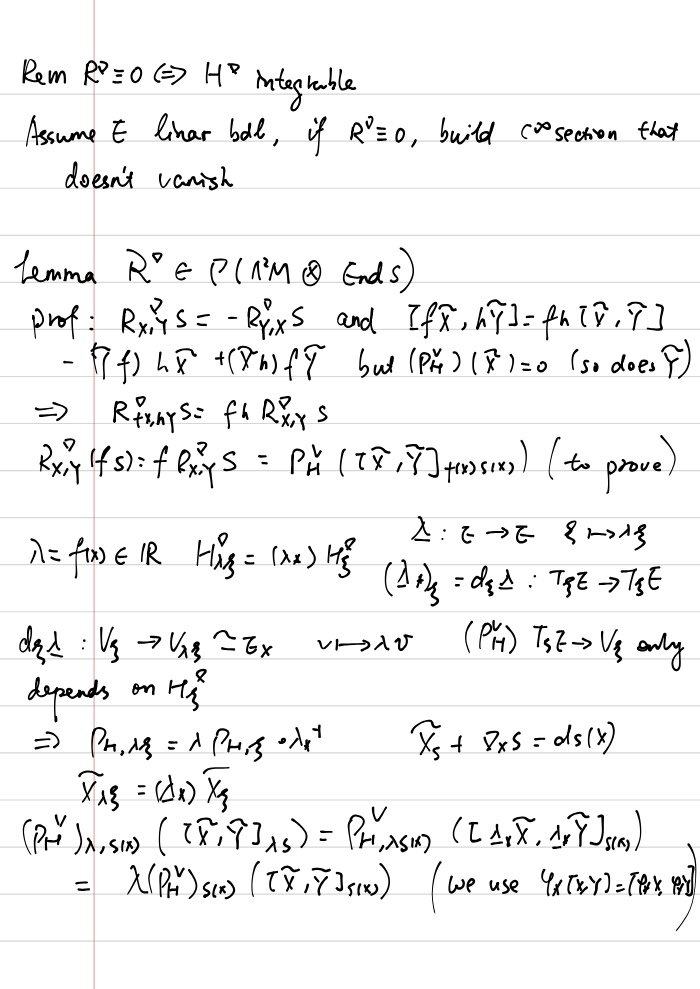 Rem R^∇ ≡ 0 ⟺ H^∇ integrable
Assume E linar bdl, if R^∇ ≡ 0, build C^∞ section that
doesn't vanish
Lemma R^∇ ∈ Γ(Λ²M ⊗ End S)
prof: R^∇_{X,Y} S = -R^∇_{Y,X} S and [fX̃, hỸ] = fh [X̃, Ỹ]
- (Ỹf) hX̃ + (X̃h) fỸ but (P^V_H)(X̃) = 0 (so does Ỹ)
⟹ R^∇_{fX,hY} S = fh R^∇_{X,Y} S
R^∇_{X,Y}(fs) = f R^∇_{X,Y} S = P^V_H ([X̃, Ỹ]_{f(x)s(x)}) (to prove)
λ = f(x) ∈ ℝ H^∇_{λξ} = (λ_*) H^∇_ξ λ : E → E ξ ↦ λξ
(λ_*)_ξ = d_ξ λ : T_ξE → T_ξE
d_ξ λ : V_ξ → V_{λξ} ≃ E_x v ↦ λv (P^V_H) T_ξE → V_ξ only
depends on H^∇_ξ
⟹ P_{H,λξ} = λ P_{H,ξ} ∘ λ_*^{-1} X̃_s + ∇_X s = ds(X)
X̃_{λξ} = (λ_*) X̃_ξ
(P^V_H)_{λ,s(x)} ([X̃, Ỹ]_{λs}) = P^V_{H,λs(x)} ([λ_*X̃, λ_*Ỹ]_{s(x)})
= λ(P^V_H)_{s(x)} ([X̃, Ỹ]_{s(x)}) (we use φ_*[X,Y] = [φ_*X, φ_*Y])